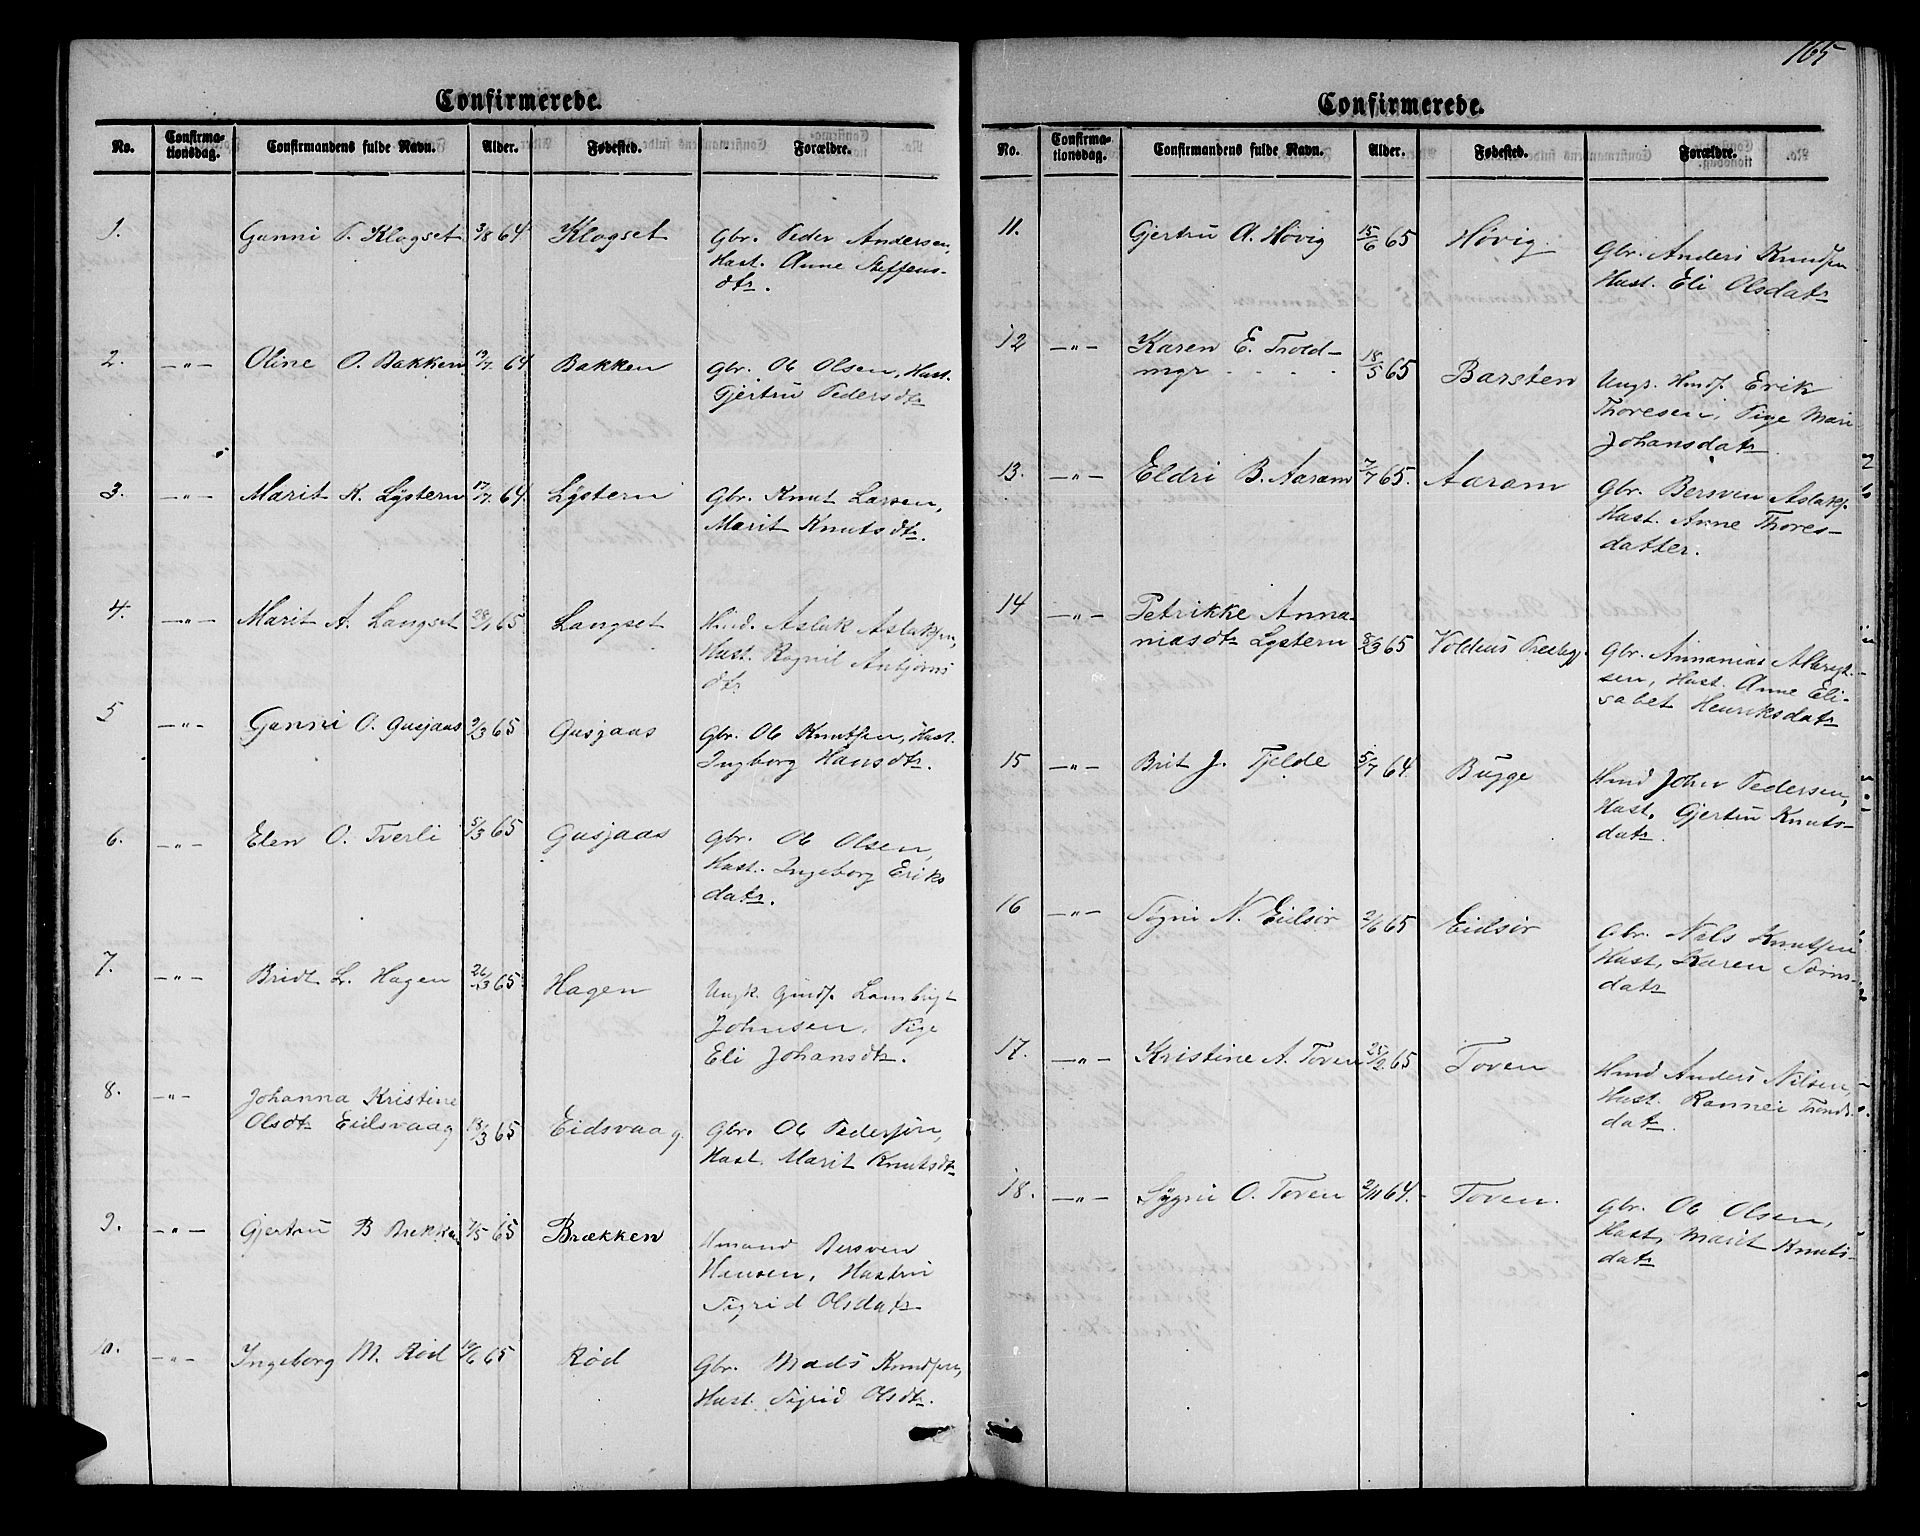 Confirmerede.
No. Confirma-
tionsdag. Confirmandens fulde Navn. Alder. Fødested. Forældre.
1. Gunni P. Klogset 3/8 64 Klogset Gbr. Peder Andersen,
Hust. Anne Steffens-
dtr.
2. -"- Oline O. Bakken 19/7 64 Bakken Gbr. Ole Olsen, Hust.
Gjertru Pedersdtr
3. -"- Marit K. Lystern 17/7 64 Lystern Gbr. Knut Larsen,
Marit Knutsdtr.
4. -"- Marit A. Langset 28/1 65 Langset Hmd. Aslak Aslaksen,
Hust. Ragnil
dtr
5 -"- Gunni O. Gusjaas 9/3 65 Gusjaas Gbr. Ole Knutsen, Hust.
Ingborg Hansdtr.
6. -"- Elen O. Tverli 5/3 65 Gusjaas Gbr. Ole Olsen,
Hust. Ingeborg Eriks
datr.
7. -"- Bridt L. Hagen 26/3 65 Hagen Ungk. Lambrigt
Johnsen, Pige
Eli Johansdtr.
8. -"- Johanna Kristine
Olsdtr Eidsvaag 18/3 65 Eidsvaag. Gbr. Ole Pedersen,
Hust. Marit Knutsdtr
9. -"- Gjertru B Brekken 7/5 65 Brækken Hmand Bersven
Hensen, Hustru
Sigrid Olsdatr
10. -"- Ingeborg M. Rød 10/6 65 Rød Gbr. Mads Knudsen,
Hust. Sigrid Olsdtr.
165
Confirmerede.
No. Confirma-
tionsdag. Confirmandens fulde Navn. Alder. Fødested. Forældre.
11. Gjertru A. Høvig 15/6 65 Høvig. Gbr. Anders Knudsen
Hust. Eli Olsdatr
12 -"- Karen E. Trold-
myr . . . . 18/5 65 Barsten Ungk. Hmds. Erik
Thoresen, Pige Mari
Johansdatr
13. -"- Eldri B. Aaram 7/7 65. Aaram Gbr. Bersven Aslaks.
Hust. Anne Thores-
datter.
14 -"- Petrikke Anna-
niasdtr Lystern 8/3 65 Voldens Præstegj. Gbr. Annanias Albregt-
sen, Hust. Anne Eli-
sabet Henriksdatr
15 -"- Brit J. Fjelde 5/7 64. Bugge Hmd John Pedersen,
Hust. Gjertru Knuts-
datr
16 -"- Sygni N. Eidsør 2/6 65 Eidsør Gbr. Nils Knutsen
Hust, Karen
datr
17. -"- Kristine A. Toven 25/2 65 Toven Hmd Anders Nilsen,
Hust. Rannei Tronds
datr
18. -"- Sygni O. Toven 2/11 64. Toven. Gbr. Ole Olsen,
Hust, Marit Knuts-
datr